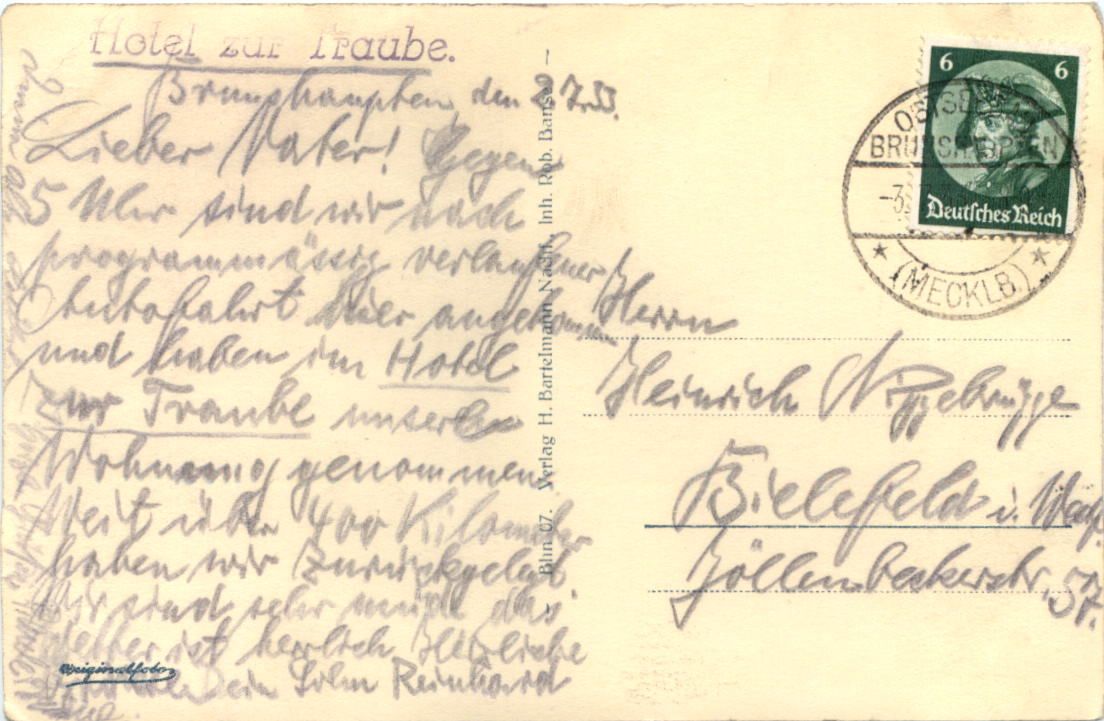 Hotel zur Traube.
Brunshaupten, den 2.7.33.
Lieber Vater! Gegen
5 Uhr sind wir nach
programmässig verlaufener
Autofahrt hier angekommen
und haben im Hotel
zur Traube unsere
Wohnung genommen.
Weit über 400 Kilometer
haben wir zurückgelegt
Wir sind sehr müde das
Wetter ist herrlich Herzliche
Dein Sohn Reinhard
Originalfoto
Blln 07. Verlag H. Bartelmann Nachf., Inh. Rob. Banse
6 6
Deutsches Reich
OSTSEEBAD
BRUNSHAUPTEN
(MECKLB)
Herrn
Heinrich Nippebrügge
Bielefeld i. Westf.
Jöllenbeckerstr. 57.